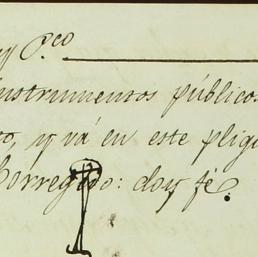 y P.co
Instrumentos públicos
to, y vá en este plieg
Corregido: doy fé.